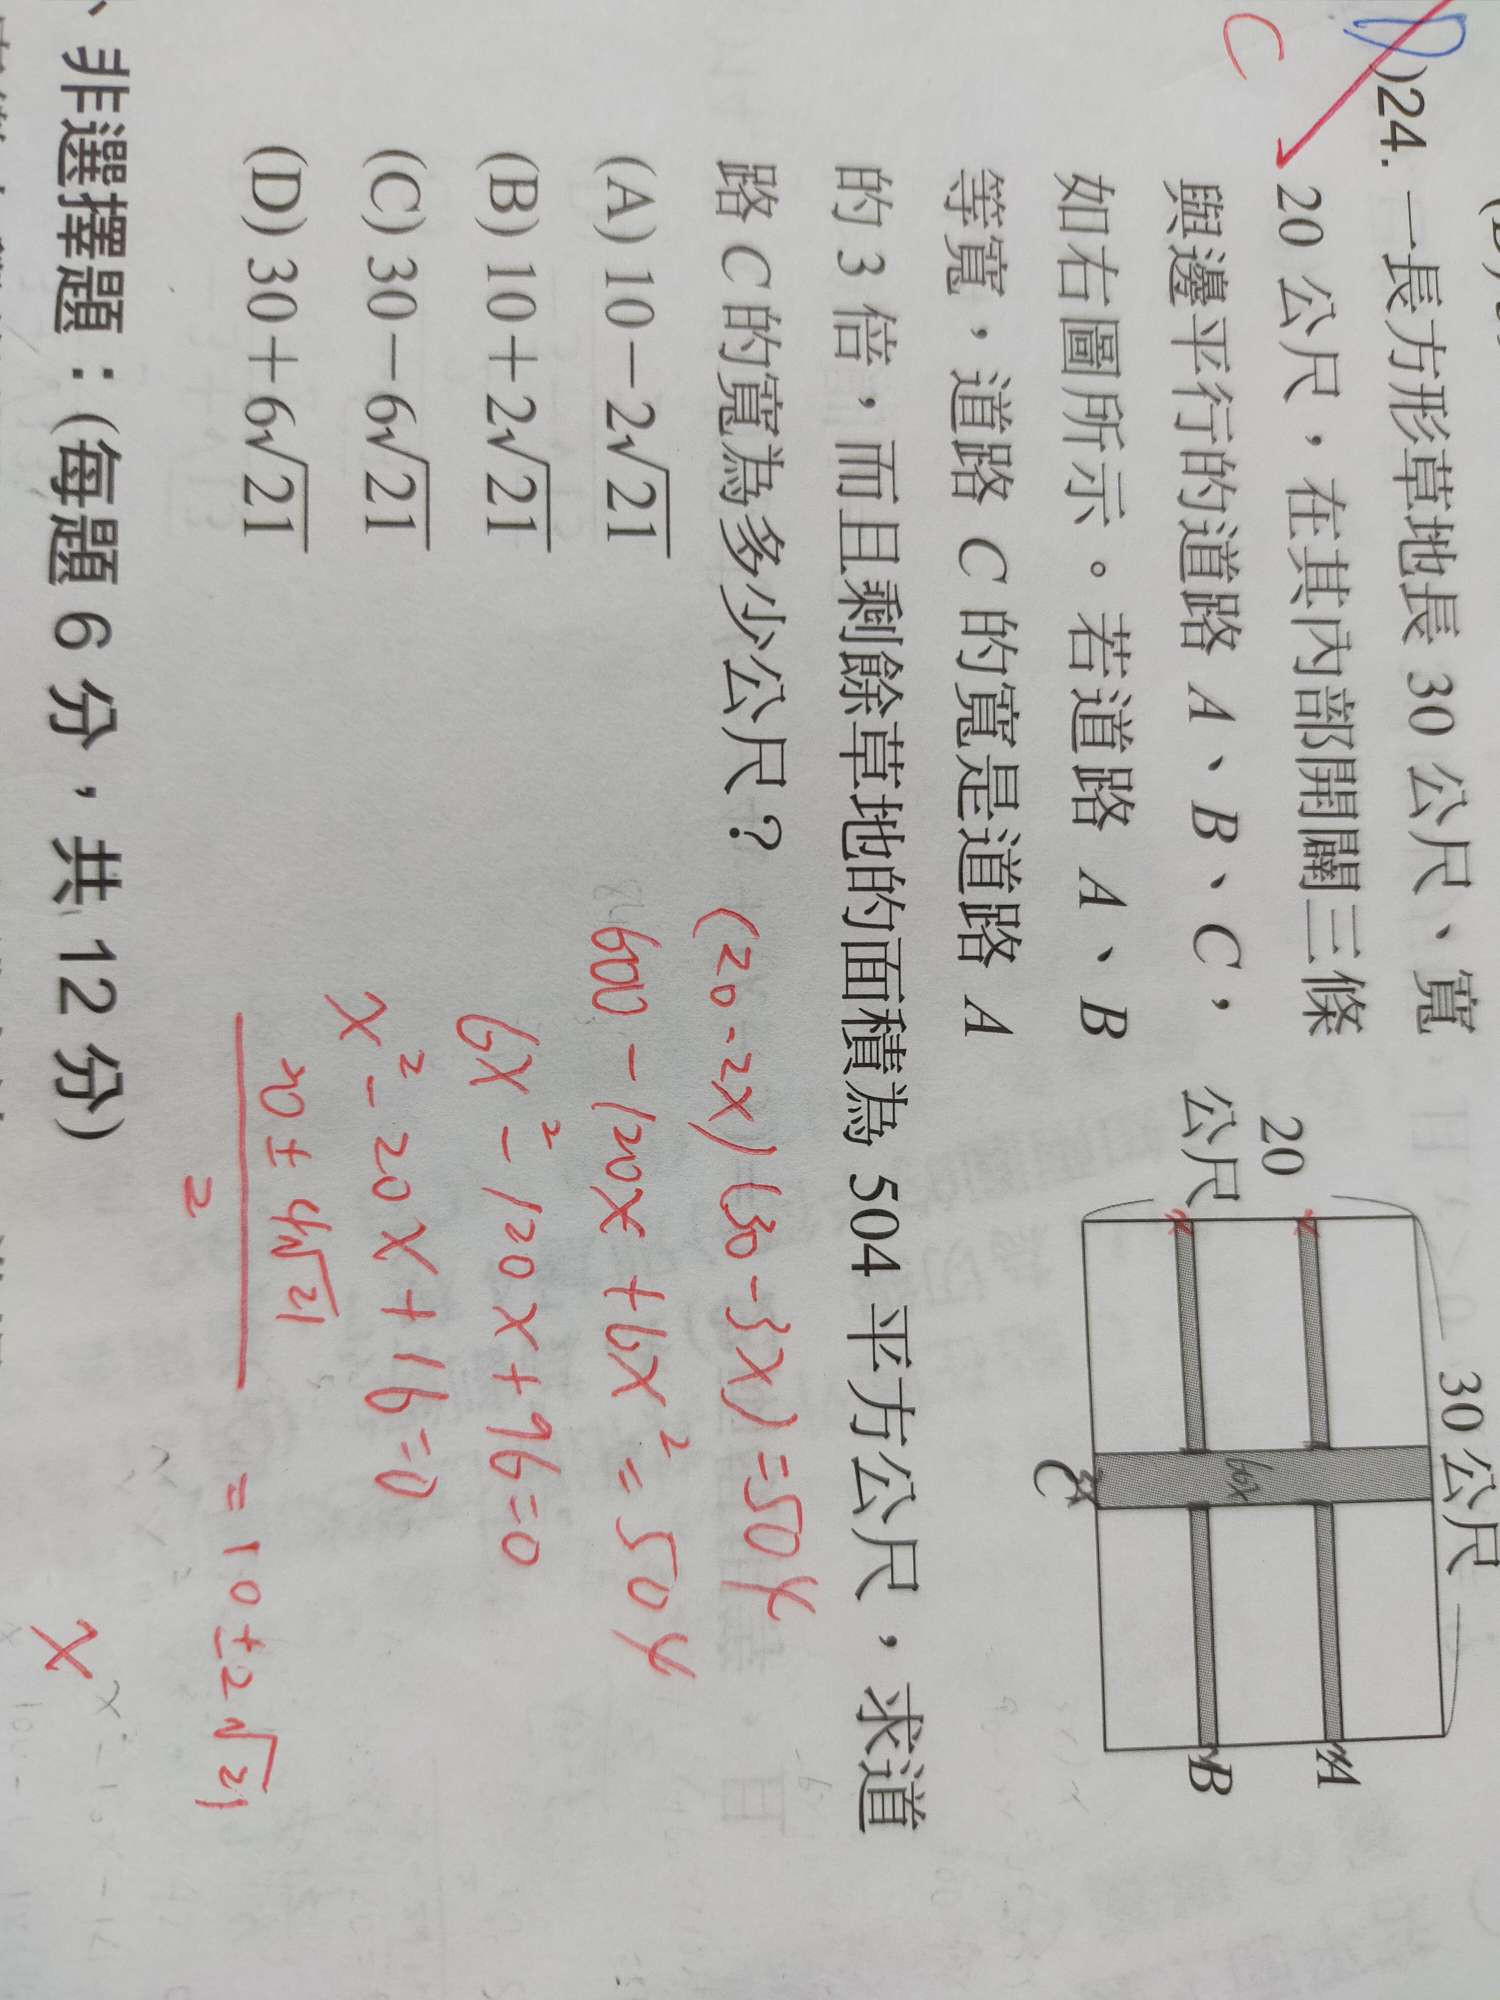 )24. 一長方形草地長 30 公尺、寬
20 公尺，在其內部開闢三條
與邊平行的道路 A、B、C，
如右圖所示。若道路 A、B
等寬，道路 C 的寬是道路 A
的 3 倍，而且剩餘草地的面積為 504 平方公尺，求道
路 C 的寬為多少公尺？
(A) 10－2√21
(B) 10＋2√21
(C) 30－6√21
(D) 30＋6√21
C
30 公尺
20
公尺
A
B
C
60x
(20-2x)(30-3x)=504
600-120x+6x²=504
6x²-120x+96=0
x²-20x+16=0
20±4√21
2
=10±2√21
x
非選擇題：(每題 6 分，共 12 分)